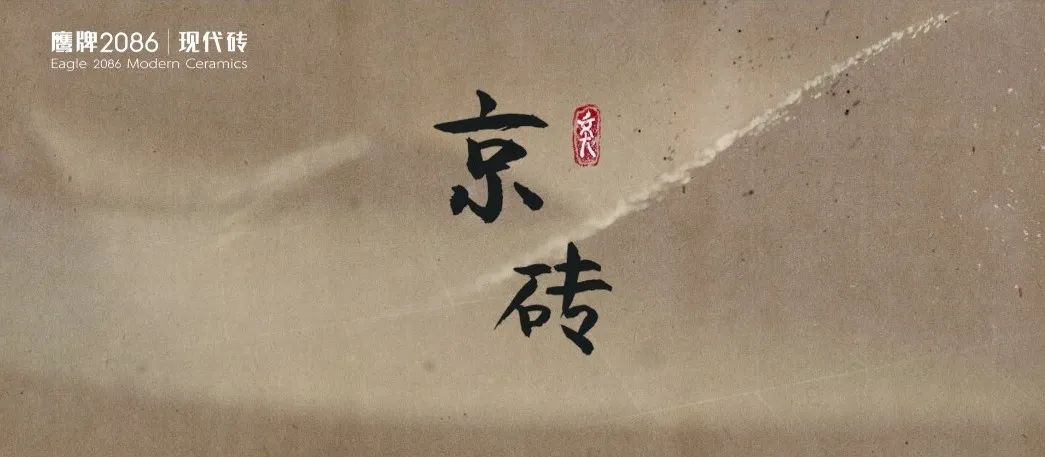 鹰牌2086|现代砖
Eagle 2086 Modern Ceramics
京
砖